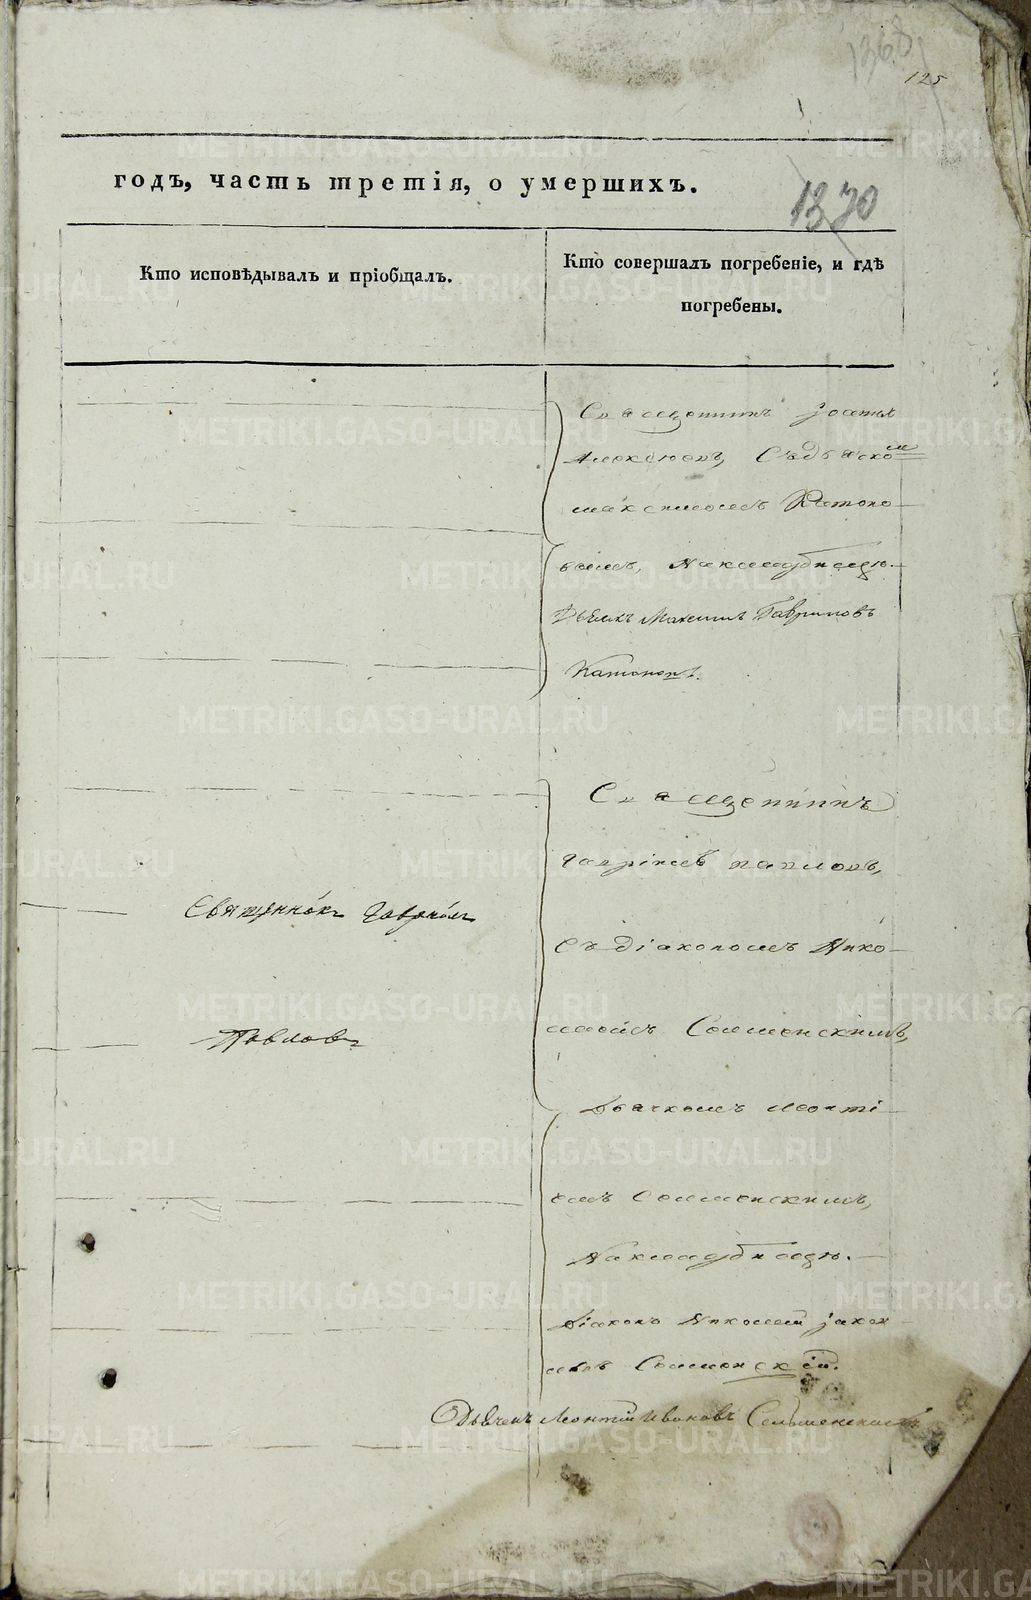 125
годъ, часть третія, о умершихъ.
1370
Кто исповѣдывалъ и пріобщалъ.
Кто совершалъ погребеніе, и гдѣ
погребены.
Священникъ
Алексѣевъ, Съ дьячко м
максимомъ Катоно
вымъ, на кладбищѣ.
Дьячкъ Максимъ Гавриловъ
Катоновъ.
Священникъ
гавріилъ павловъ,
Священникъ Гавриілъ
Съ діакономъ Нико
Павловъ
лаемъ Селменскимъ,
дьячкомъ леонті
емъ Селменскимъ,
На кладбищѣ.
діаконъ Николай яков
левъ Селменскій.
Дьячекъ Леонтій Ивановъ Сельменскихъ
METRIKI.GASO-URAL.RU